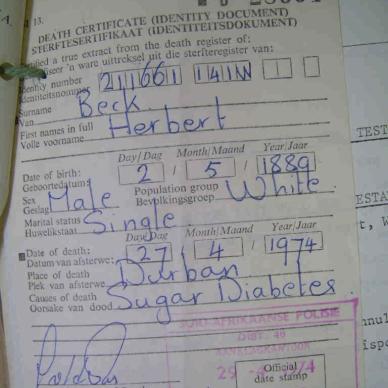 13.
DEATH CERTIFICATE (IDENTITY DOCUMENT)
STERFTESERTIFIKAAT (IDENTITEITSDOKUMENT)
a true extract from the death register of:
'n ware uittreksel uit die sterfteregister van:
Identity number
Identiteitsnommer 211661 141W
Surname
Van Beck
First names in full
Volle voorname Herbert
Day/Dag Month/Maand Year/Jaar
Date of birth:
Geboortedatum: 2 / 5 / 1889
Sex Population group
Geslag Male Bevolkingsgroep White
Marital status
Huwelikstaat Single
Day/Dag Month/Maand Year/Jaar
Date of death:
Datum van afsterwe: 27 / 4 / 1974
Place of death
Plek van afsterwe Durban
Causes of death
Oorsake van dood Sugar Diabetes
SUID-AFRIKAANSE POLISIE
Official
date stamp
TEST
ESTA